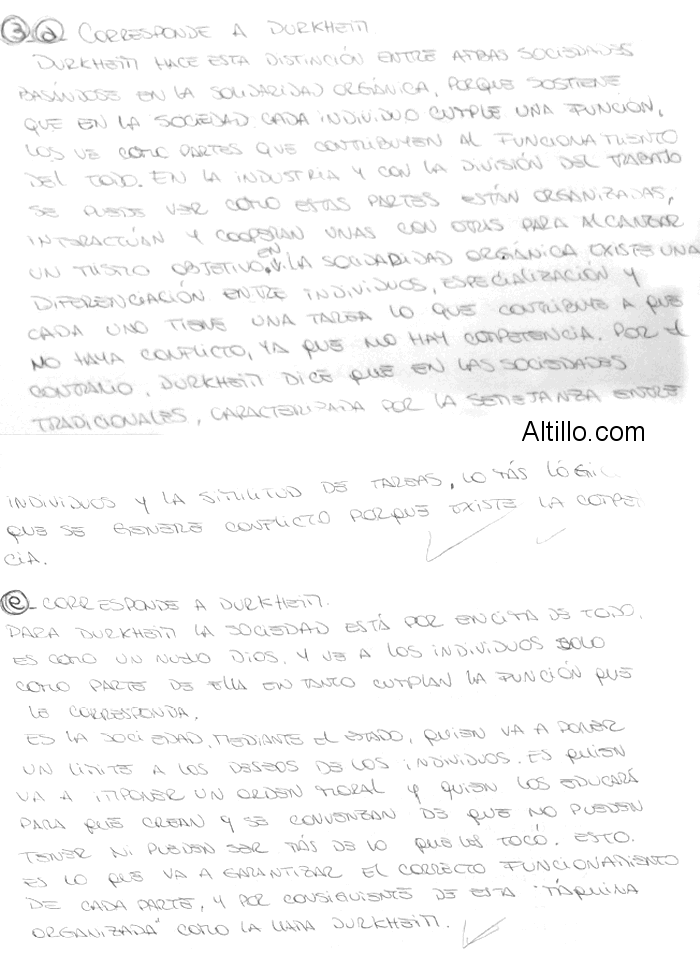 3 a CORRESPONDE A DURKHEIM.
DURKHEIM HACE ESTA DISTINCIÓN ENTRE AMBAS SOCIEDADES
BASÁNDOSE EN LA SOLIDARIDAD ORGÁNICA, PORQUE SOSTIENE
QUE EN LA SOCIEDAD CADA INDIVIDUO CUMPLE UNA FUNCIÓN,
LOS VE COMO PARTES QUE CONTRIBUYEN AL FUNCIONAMIENTO
DEL TODO. EN LA INDUSTRIA Y CON LA DIVISIÓN DEL TRABAJO
SE PUEDE VER COMO ESTAS PARTES ESTÁN ORGANIZADAS,
INTERACTÚAN Y COOPERAN UNAS CON OTRAS PARA ALCANZAR
UN MISMO OBJETIVO. EN LA SOLIDARIDAD ORGÁNICA EXISTE UNA
DIFERENCIACIÓN ENTRE INDIVIDUOS, ESPECIALIZACIÓN Y
CADA UNO TIENE UNA TAREA LO QUE CONTRIBUYE A QUE
NO HAYA CONFLICTO, YA QUE NO HAY COMPETENCIA. POR EL
CONTRARIO, DURKHEIM DICE QUE EN LAS SOCIEDADES
TRADICIONALES, CARACTERIZADA POR LA SEMEJANZA ENTRE
Altillo.com
INDIVIDUOS Y LA SIMILITUD DE TAREAS, LO MÁS LÓGIC
QUE SE GENERE CONFLICTO PORQUE EXISTE LA COMPE
CIA.
e CORRESPONDE A DURKHEIM.
PARA DURKHEIM LA SOCIEDAD ESTÁ POR ENCIMA DE TODO.
ES COMO UN NUEVO DIOS. Y VE A LOS INDIVIDUOS SOLO
COMO PARTE DE ELLA EN TANTO CUMPLAN LA FUNCIÓN QUE
LE CORRESPONDA.
ES LA SOCIEDAD, MEDIANTE EL ESTADO, QUIEN VA A PONER
UN LÍMITE A LOS DESEOS DE LOS INDIVIDUOS. ES QUIEN
VA A IMPONER UN ORDEN MORAL Y QUIEN LOS EDUCARÁ
PARA QUE CREAN Y SE CONVENZAN DE QUE NO PUEDEN
TENER NI PUEDEN SER MÁS DE LO QUE LES TOCÓ. ESTO.
ES LO QUE VA A GARANTIZAR EL CORRECTO FUNCIONAMIENTO
DE CADA PARTE, Y POR CONSIGUIENTE DE ESTA "MÁQUINA
ORGANIZADA" COMO LA LLAMA DURKHEIM.